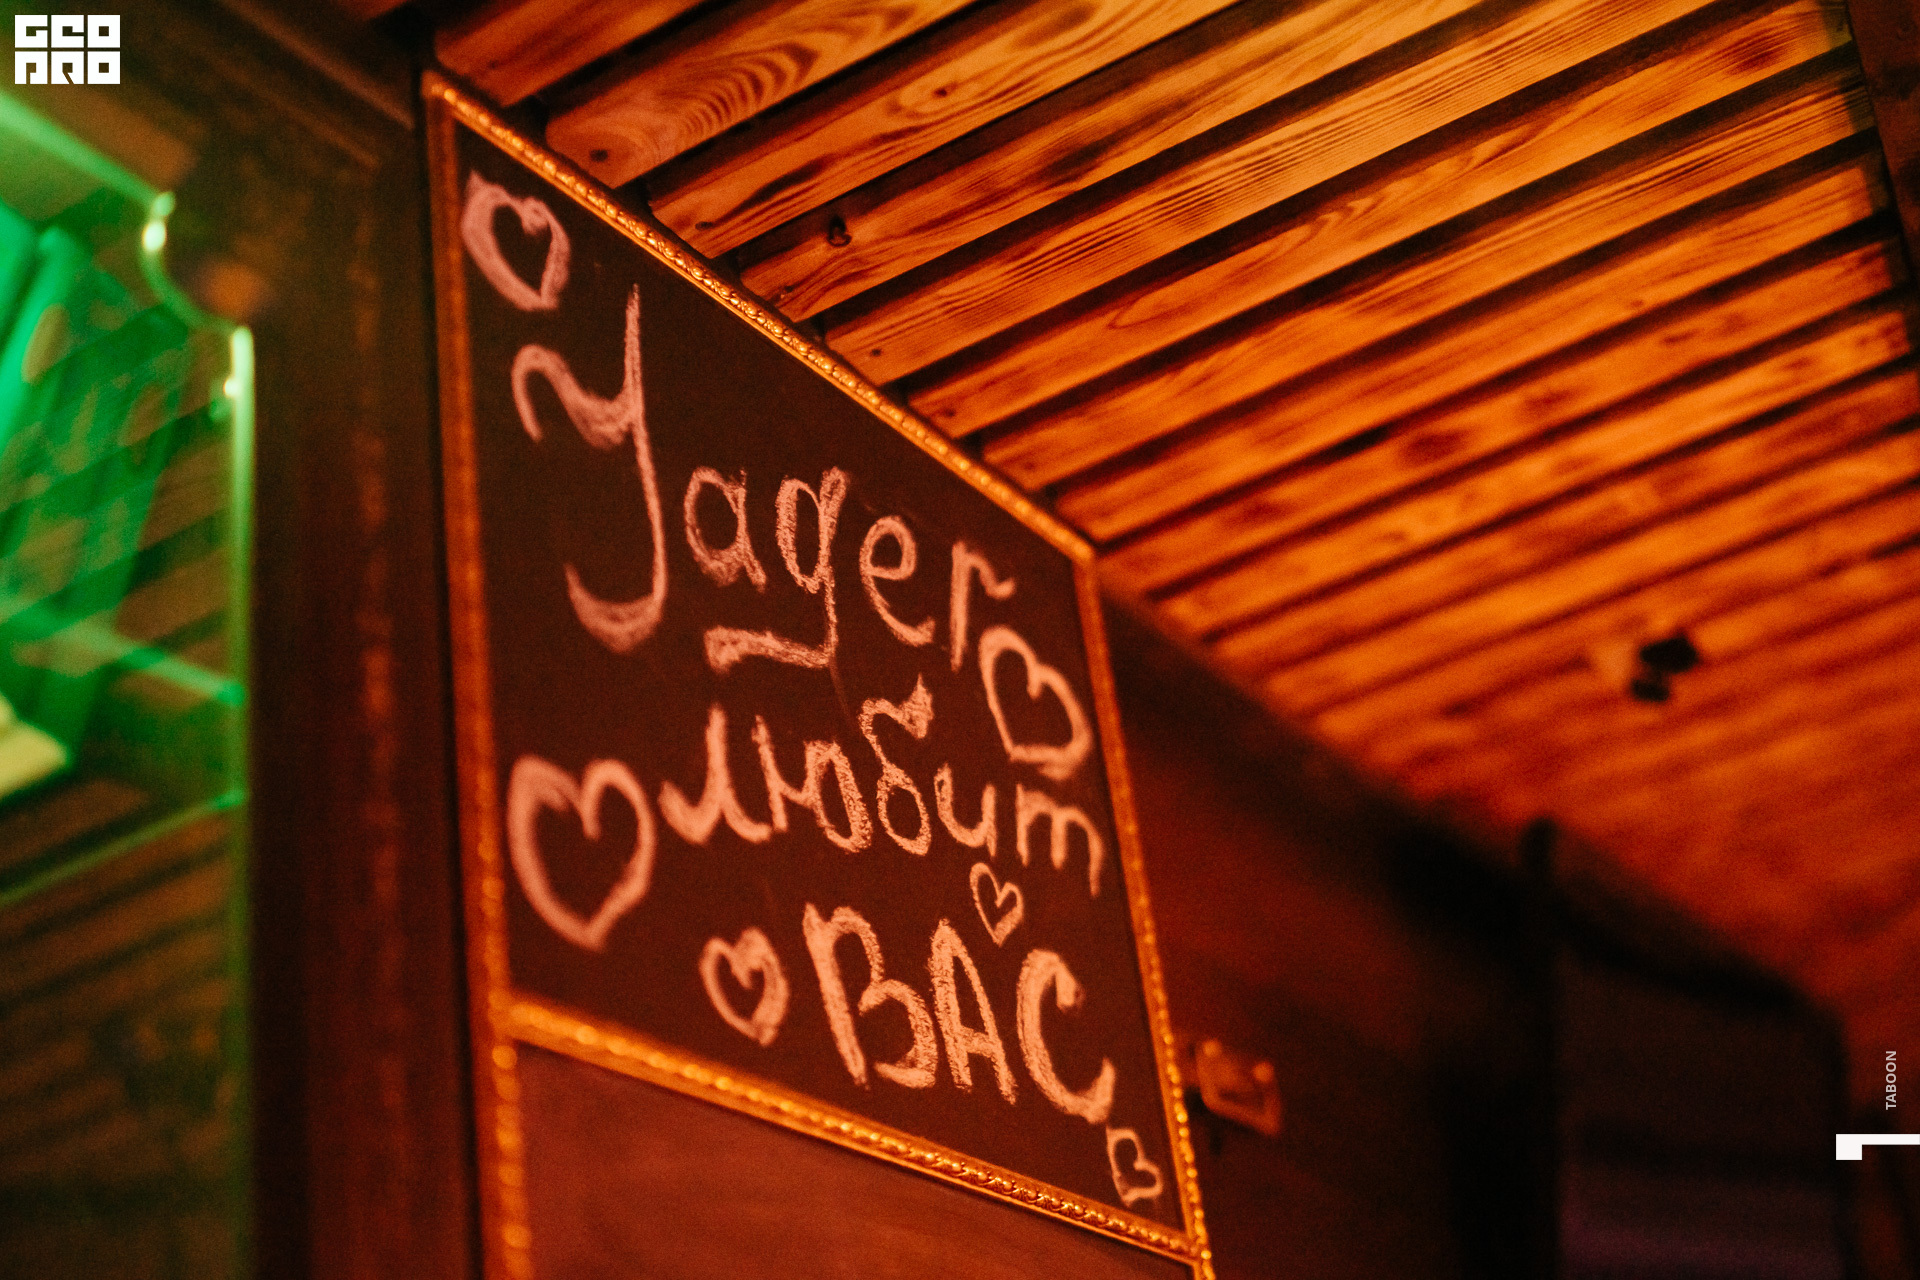 GEO
PRO
Yager
любит
ВАС
TABOON
1